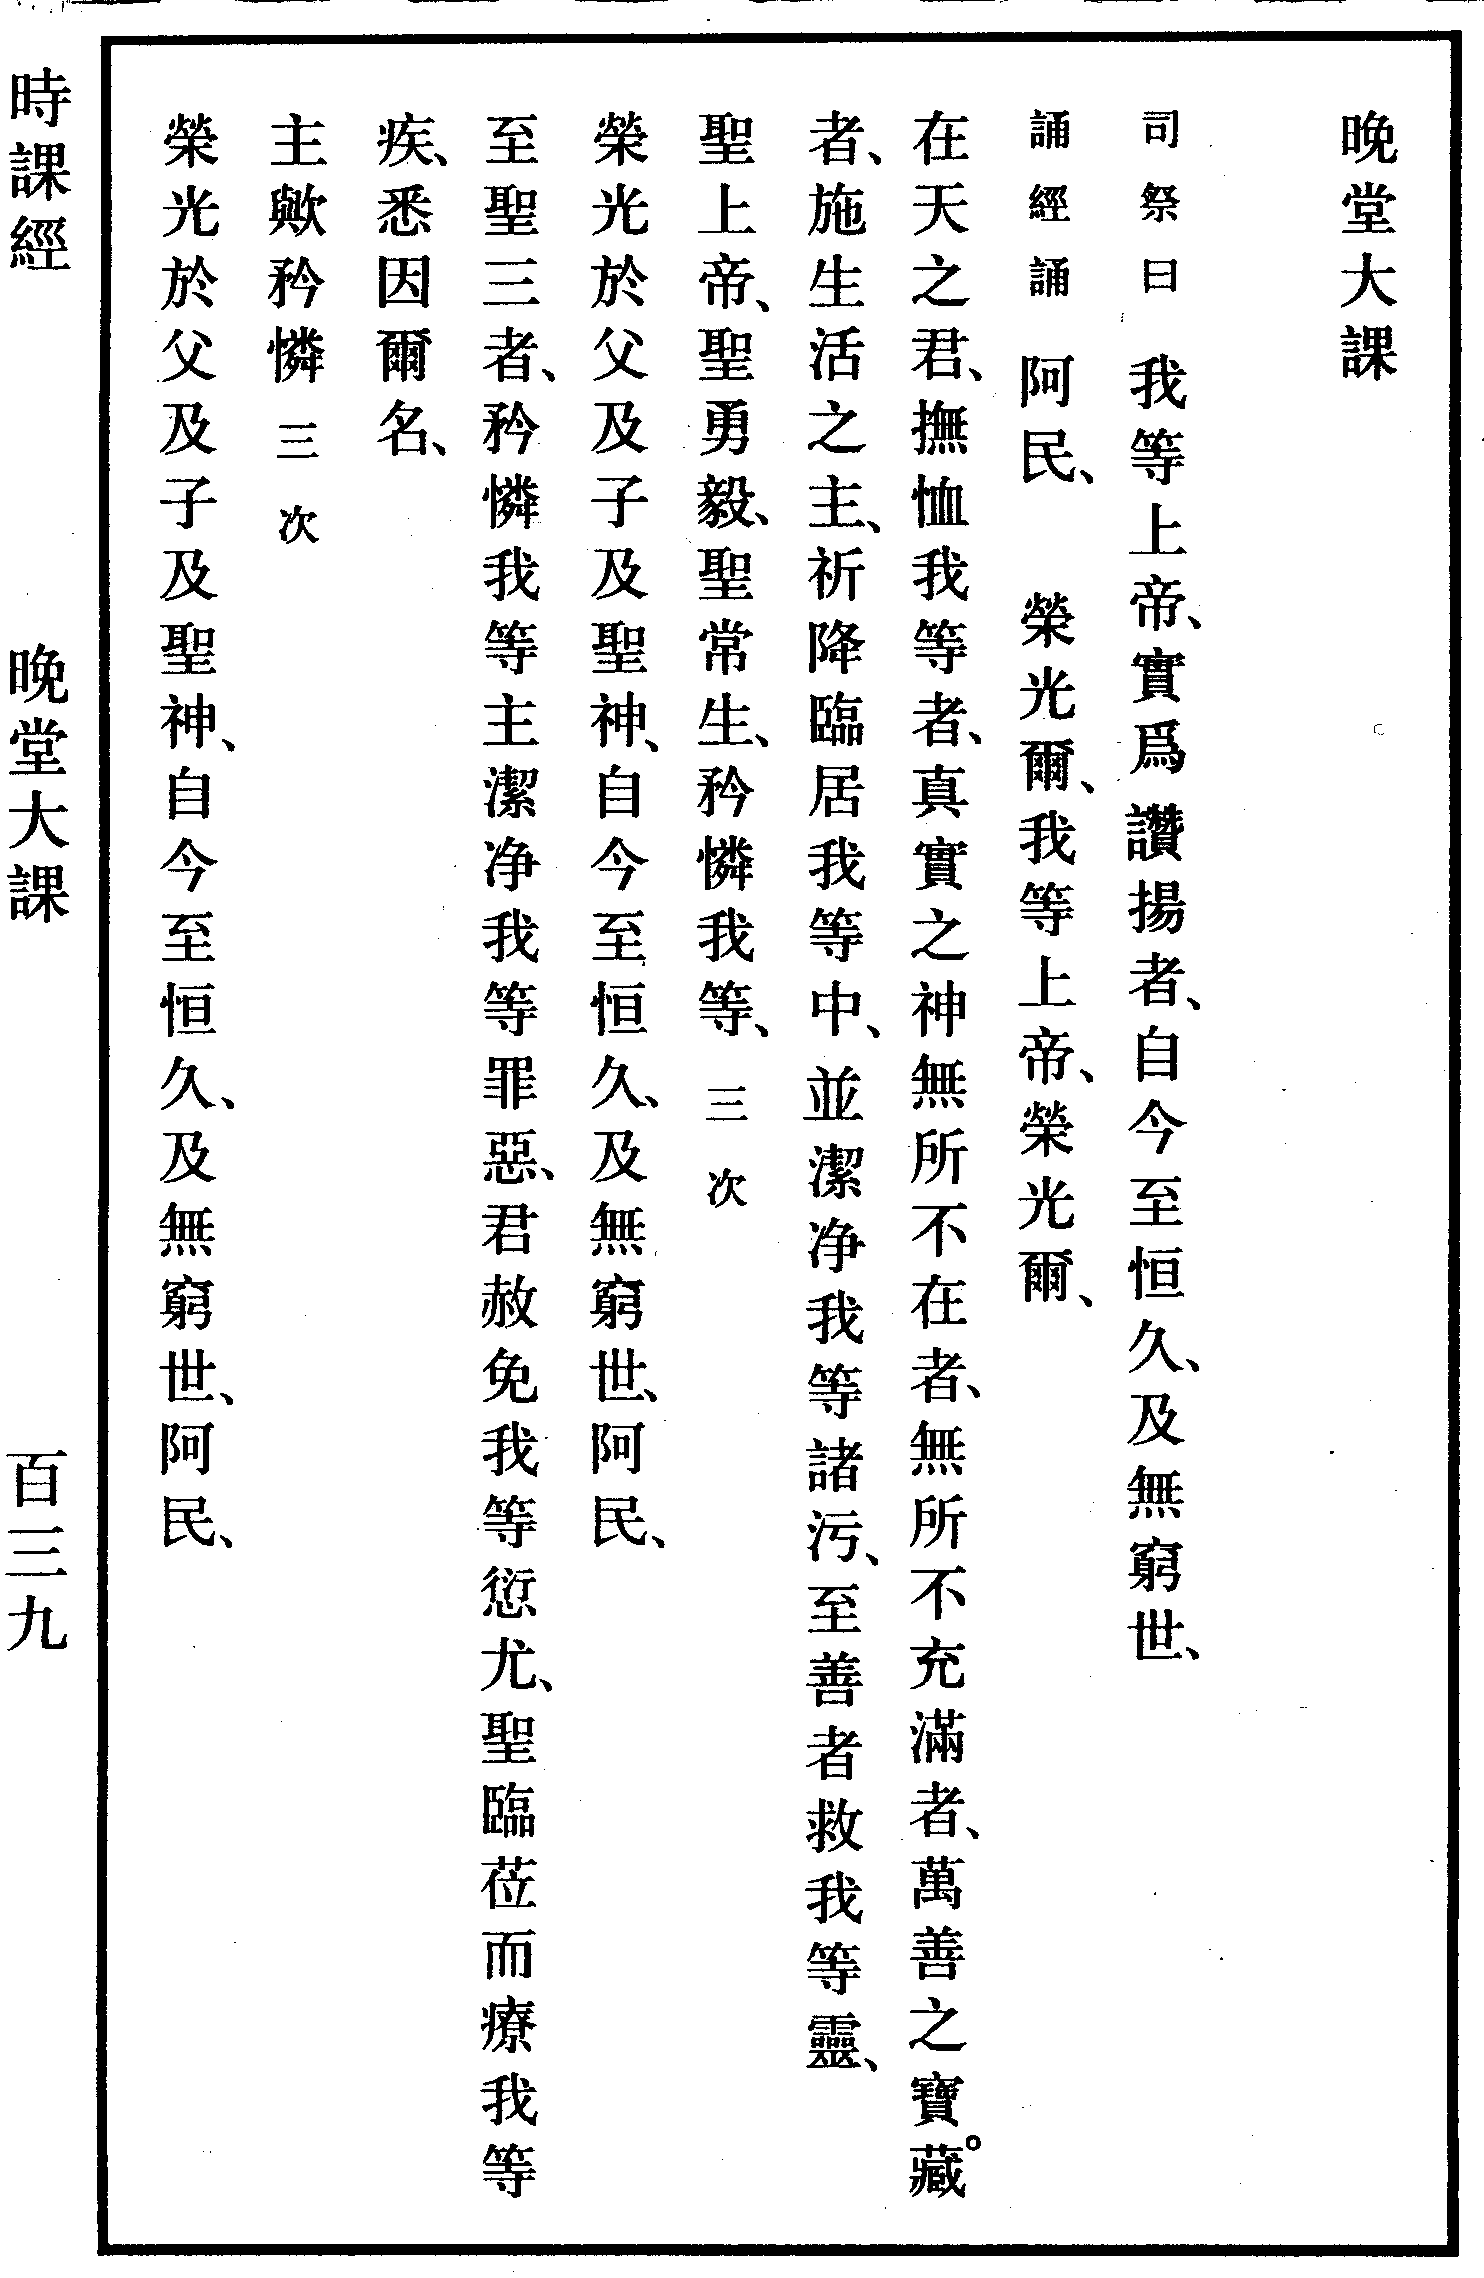 晚堂大課
司祭曰 我等上帝、實爲讚揚者、自今至恒久、及無窮世、
誦經誦 阿民、 榮光爾、我等上帝、榮光爾、
在天之君、撫恤我等者、真實之神無所不在者、無所不充滿者、萬善之寶藏
者、施生活之主、祈降臨居我等中、並潔净我等諸污、至善者救我等靈、
聖上帝、聖勇毅、聖常生、矜憐我等、 三次
榮光於父及子及聖神、自今至恒久、及無窮世、阿民、
至聖三者、矜憐我等主潔净我等罪惡、君赦免我等愆尤、聖臨莅而療我等
疾、悉因爾名、
主歟矜憐 三次
榮光於父及子及聖神、自今至恒久、及無窮世、阿民、
時課經 晚堂大課 百三九